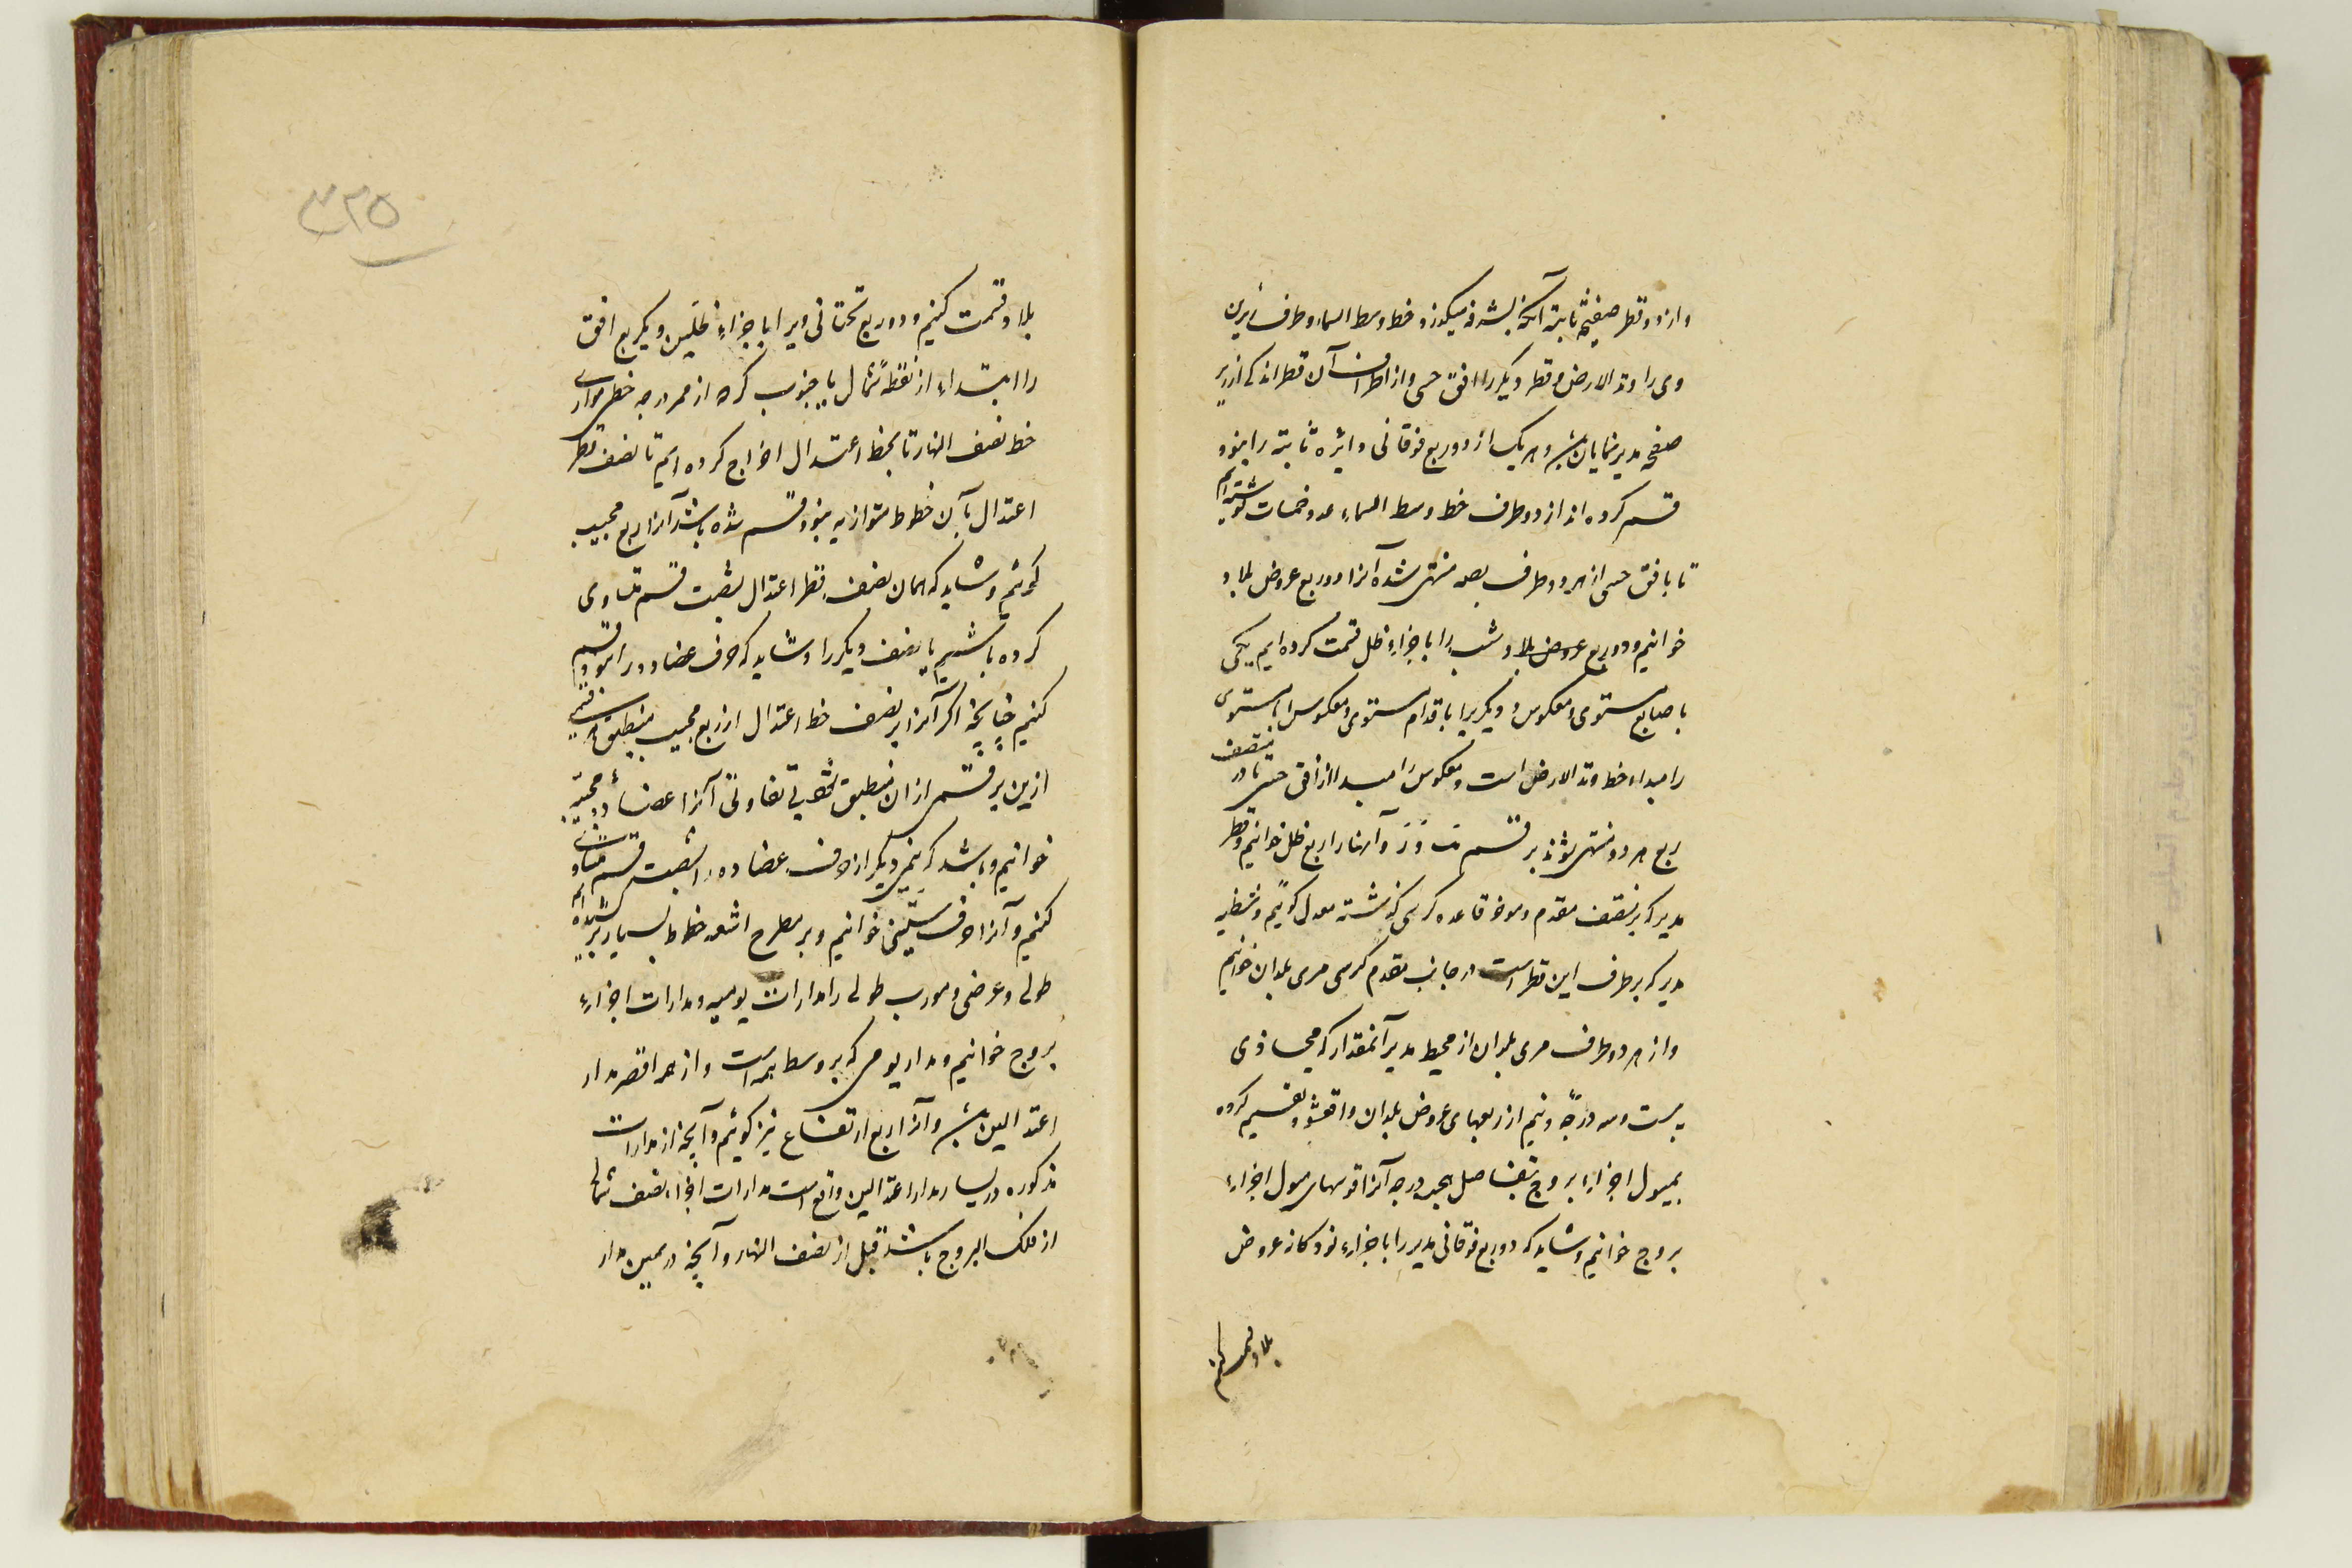 و از دو قطر صفیحهٔ ثابته آنکه بشرفه میگذرد خط وسط السماء و طرف زیرین
وی را وتد الارض و قطر دیگر را افق حسی و از اطراف آن قطر اند که از زیر
صفحه مدیر نمایان باشد و هر یک از دو ربع فوقانی دائره ثابته را بنود
قسم کرده اند از دو طرف خط وسط السماء عدد خمسات نوشته ایم
تا بافق حسی از هر دو طرف بصه منتهی شده آنرا دو ربع عروض بلاد
خوانیم و دو ربع عروض بلاد شب را باجزاء ظل قسمت کرده ایم یکی
باصابع مستوی و معکوس و دیگریرا باقدام مستوی و معکوس مستوی
را مبداء خط وتد الارض است و معکوس را مبدا از افق حسی تا در منتصف
ربع هر دو منتهی شوند بر قسم و آنها را ربع ظل خوانیم و قطر
مدیر که بر منتصف مقدم و موخر قاعده کرسی گذشته معدل گوئیم و شظیه
مدیر که بر طرف این قطر است در جانب مقدم کرسی مری بلدان خوانیم
و از هر دو طرف مری بلدان از محیط مدیر آنمقدار که محاذی
بیست و سه درجه و نیم از ربعهای عروض بلدان واقع شود تقسیم کرده
بمیول اجزاء بروج بتفاضل پنجدرجه آنرا قوسهای میول اجزاء
بروج خوانیم و شاید که دو ربع فوقانی مدیر را باجزاء نودگانه عروض
بلاد قسمت کنیم
۳۲۵
بلاد قسمت کنیم و دو ربع تحتانی ویرا باجزاء ظلین و یکربع افق
را ابتداء از نقطهٔ شمال یا جنوب کرده از هر درجه خطی موازی
خط نصف النهار تا بخط اعتدال اخراج کرده ایم تا نصف قطر
اعتدال بآن خطوط متوازیه بنود قسم شده باشد آنرا ربع مجیب
گوئیم و شاید که همان نصف قطر اعتدال بشصت قسم متساوی
کرده باشیم یا نصف دیگر را و شاید که حرف عضاده را بنود قسم
کنیم چنانچه اگر آنرا بر نصف خط اعتدال از ربع مجیب منطبق
ازین بر قسمی از ان منطبق شود بی تفاوتی آنرا عضادهٔ مجیبه
خوانیم و باشد که نیمی دیگر از حرف عضاده را بشصت قسم متساوی
کنیم و آنرا حرف ستینی خوانیم و بر مطرح اشعه خطوط بسیار کشیده ایم
طولی و عرضی و مورب طولی را مدارات یومیه و مدارات اجزاء
بروج خوانیم و مدار یومی که بر وسط همه است و از همه اقصر مدار
اعتدالین باشد و آنرا ربع ارتفاع نیز گوئیم و آنچه از مدارات
مذکوره در یسار مدار اعتدالین واقع است مدارات اجزاء نصف شمالی
از فلک البروج باشد قبل از نصف النهار و آنچه در یمین مدار